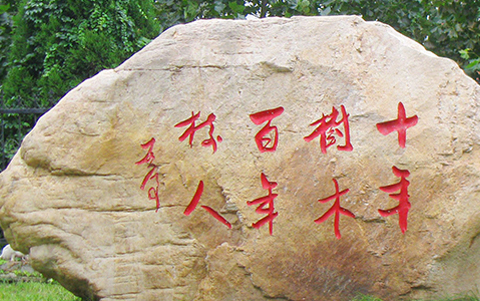 十年
樹木
百年
树人